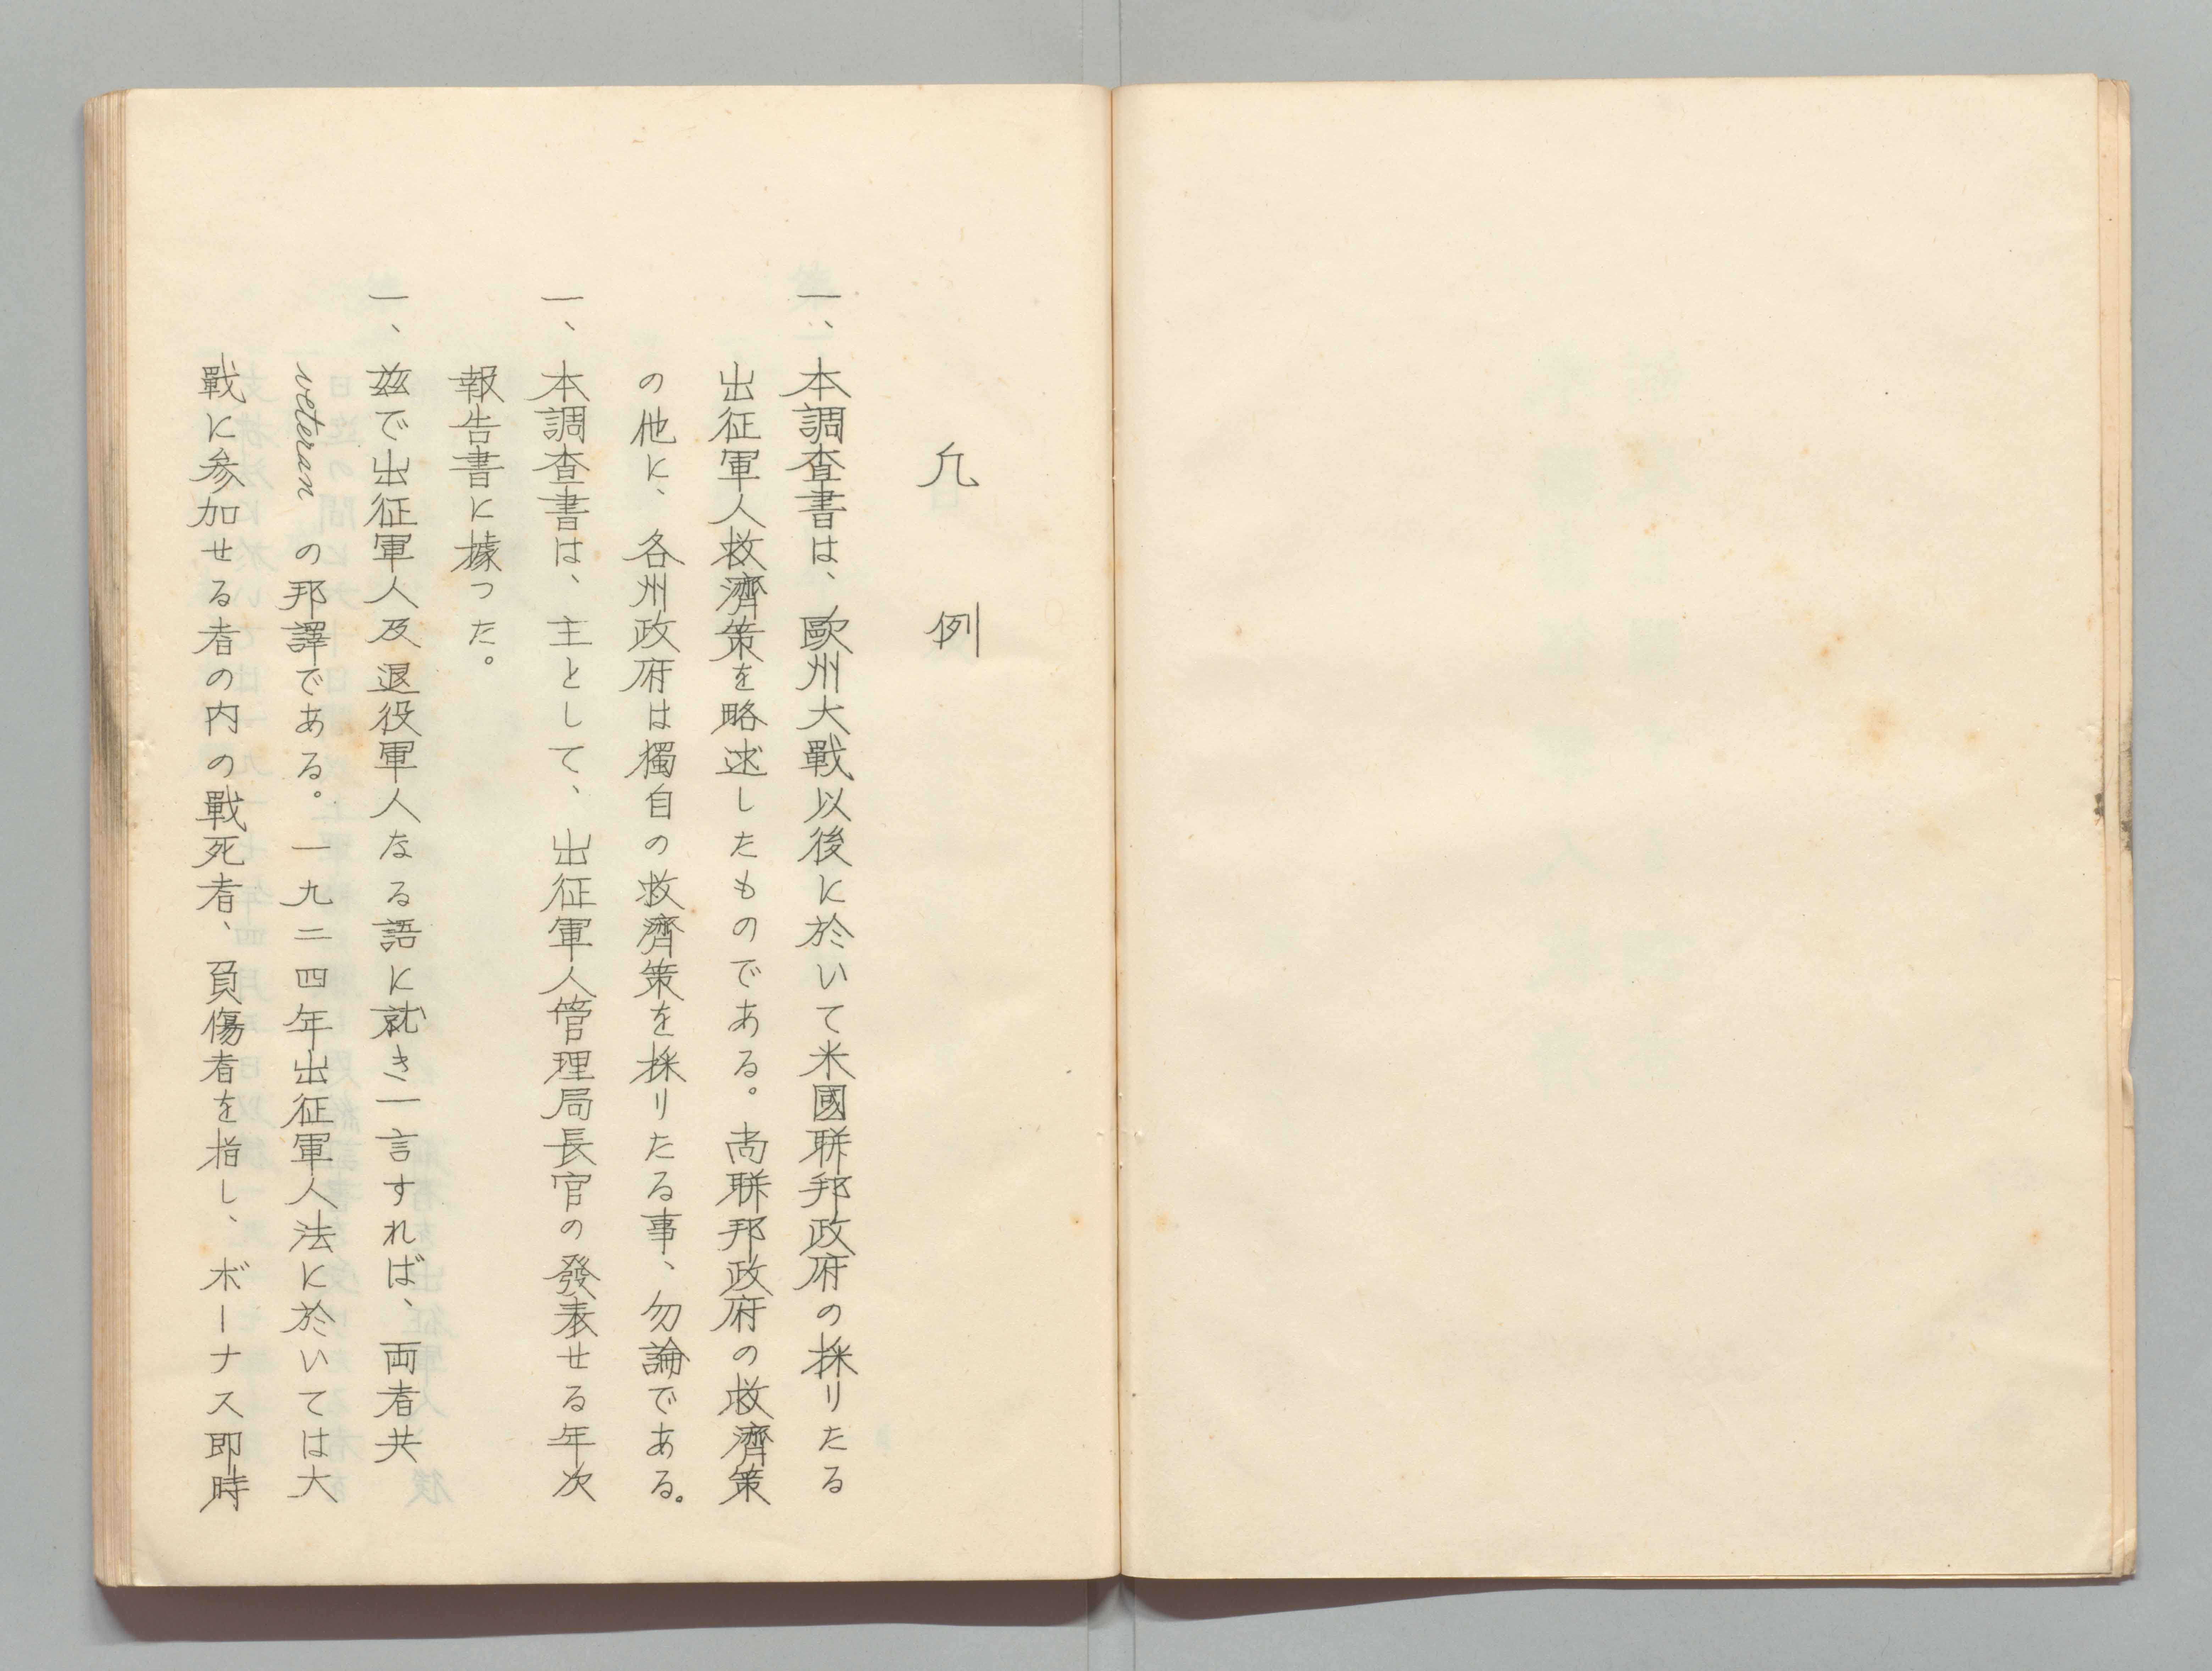 凡例
一、本調査書は、歐州大戰以後に於いて米國聯邦政府の採りたる
出征軍人救濟策を略述したものである。尚聯邦政府の救濟策
の他に、各州政府は獨自の救濟策を採りたる事、勿論である。
一、本調査書は、主として、出征軍人管理局長官の發表せる年次
報告書に據った。
一、茲で出征軍人及退役軍人なる語に就き一言すれば、両者共
veteran の邦譯である。一九二四年出征軍人法に於いては大
戰に参加せる者の内の戰死者、負傷者を指し、ボーナス即時